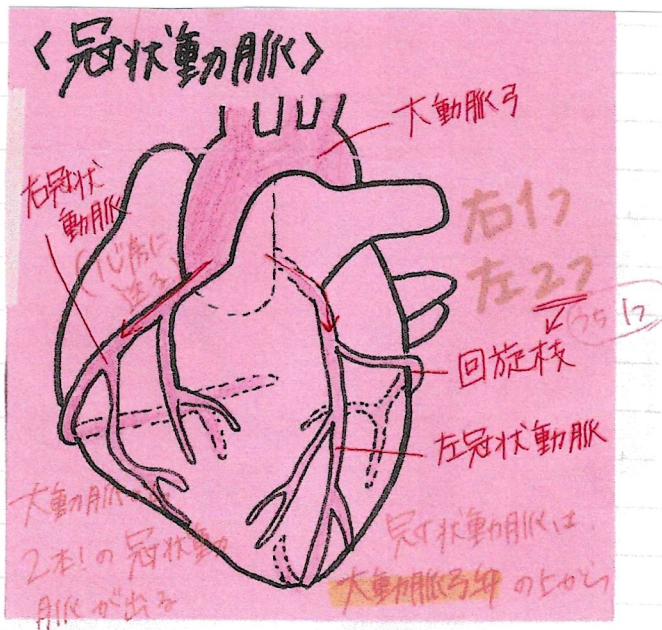 〈冠状動脈〉
大動脈弓
右冠状
動脈
(心房に
右1つ
左2つ
うち1つ
回旋枝
左冠状動脈
大動脈
2本!の冠状動
脈が出る
冠状動脈は
大動脈弓 の上から